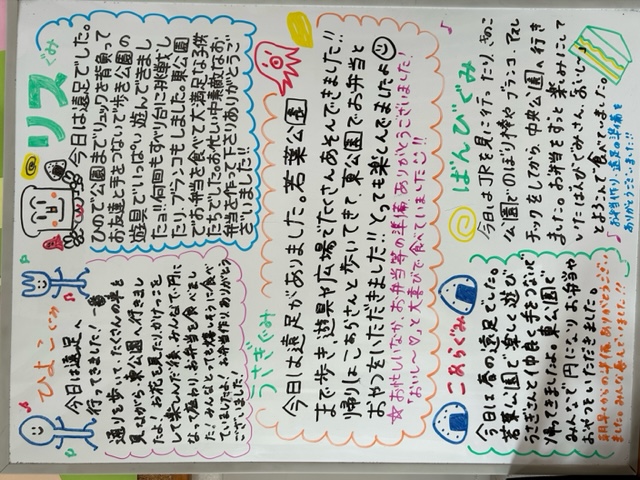 ひよこぐみ
今日は遠足へ
行ってきました！一番
通りを歩いて、たくさんの車を
見ながら東公園へ行きまし
たよ。お花を見たりかけっこを
して楽しんだ後、みんなで円に
なって座わり、お弁当を食べまし
た！みんなとっても嬉しそうに食べ
ていましたよ！お弁当作りありがとう
ございました！
リスぐみ
今日は遠足でした。
ひので公園までリュックを背負って
お友達と手をつないで歩き公園の
遊具でいっぱい遊んできまし
たョ!!何回もすべり台に挑戦し
たり、ブランコもしました。東公園
でお弁当を食べて大満足な子供
たちでした。お忙しい中素敵なお
弁当を作って下さりありがとうご
ざいました!!
うさぎぐみ
今日は遠足がありました。若葉公園
まで歩き、遊具や広場でたくさんあそんできました!!
帰りはこあらさんと歩いてきて、東公園でお弁当と
おやつをいただきました!!とっても楽しんでましたよ
☆お忙しいなか、お弁当等の準備、ありがとうございました!
「おいし〜♡」と大喜びで食べていました!!
こあらぐみ
今日は春の遠足でした。
若葉公園で楽しく遊び
うさぎさんと仲良く手をつないで
帰ってきましたよ。東公園で
みんなで円になりお弁当や
おやつをいただきました。
朝早くからの準備、ありがとうござい
ました。みんな喜んでいました!!
ばんびぐみ
今日はJRを見に行ったり、きのこ
公園でのぼり棒やブランコ、アスレ
チックをしてから、中央公園へ行き
ました。お弁当をずっと楽しみにして
いたばんびぐみさん。「おいし〜」
とよろこんで食べていました。
お弁当作り、遠足の準備を
ありがとうございました!!